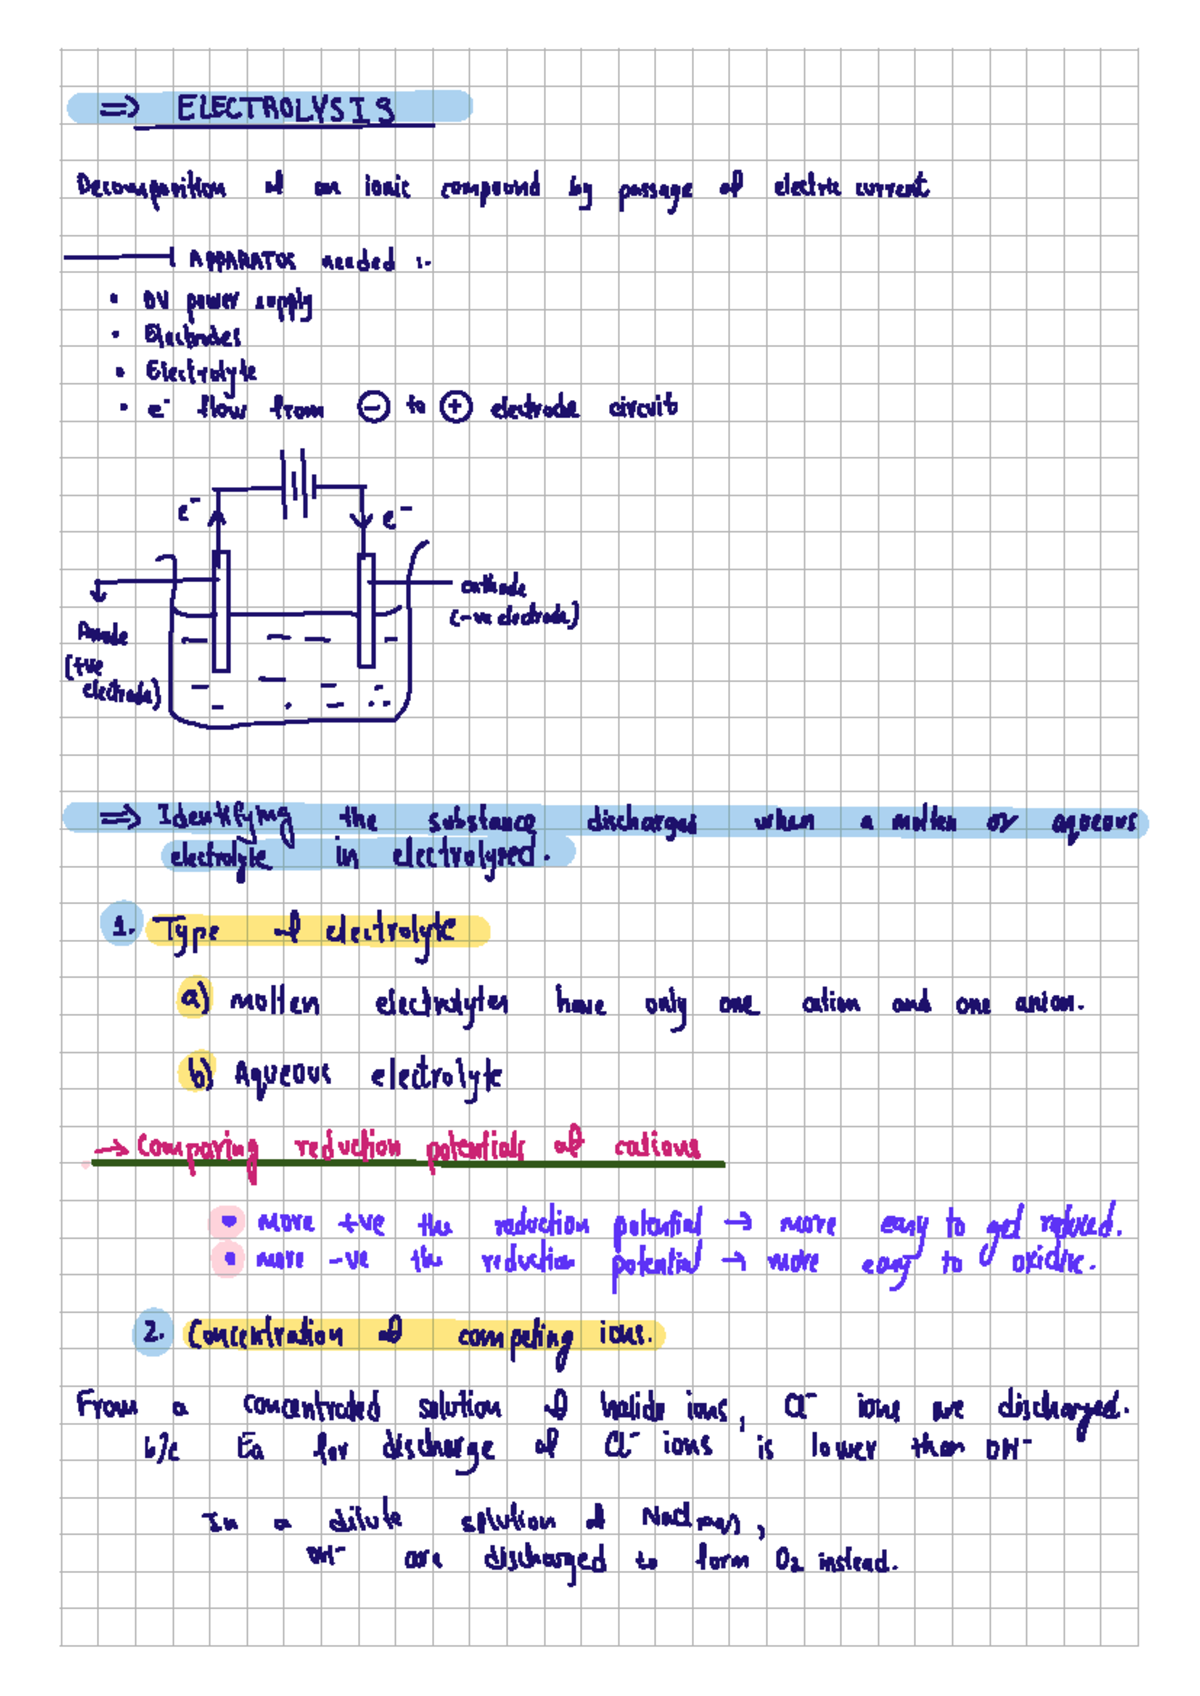 => ELECTROLYSIS
Decomposition of an ionic compound by passage of electric current
APPARATUS needed :-
• DV power supply
• Electrodes
• Electrolyte
• e⁻ flow from ⊖ to ⊕ electrode circuit
e⁻ e⁻
cathode
(-ve electrode)
Anode
(+ve
electrode)
=> Identifying the substance discharged when a molten or aqueous
electrolyte in electrolysed.
1. Type of electrolyte
a) molten electrolytes have only one cation and one anion.
b) Aqueous electrolyte
→ Comparing reduction potentials of cations
• more +ve the reduction potential → more easy to get reduced.
• more -ve the reduction potential → more easy to oxidize.
2. Concentration of competing ions.
From a concentrated solution of halide ions, Cl⁻ ions are discharged.
b/c Ea for discharge of Cl⁻ ions is lower than OH⁻
In a dilute solution of NaCl(aq),
OH⁻ are discharged to form O₂ instead.